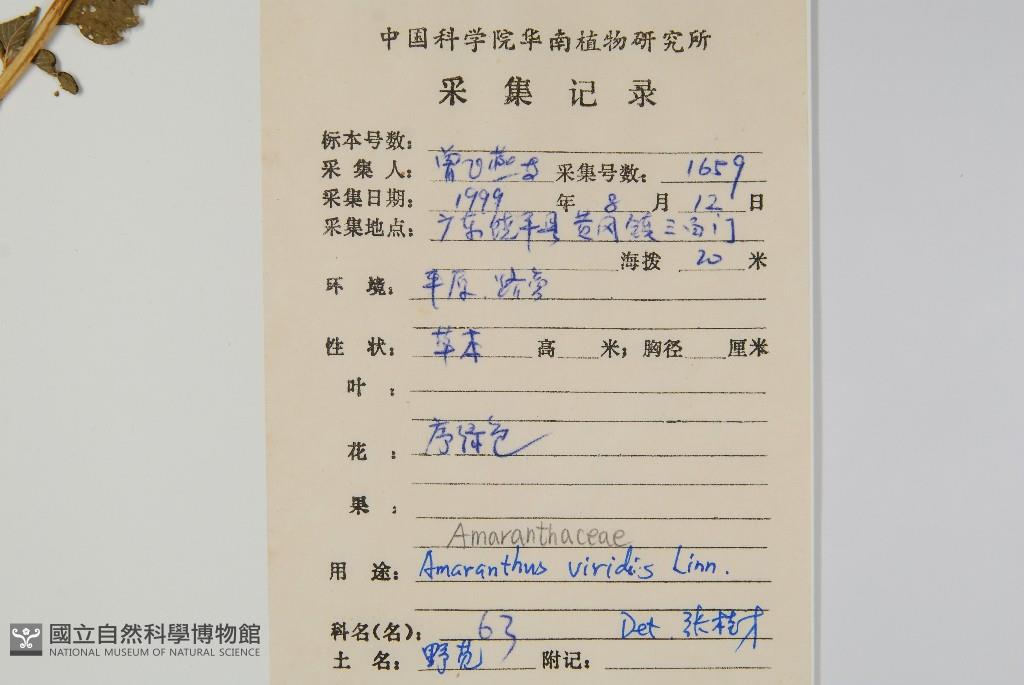 中国科学院华南植物研究所
采集记录
标本号数：
采集人：曾飞燕 采集号数：1659
采集日期：1999年8月12日
采集地点：广东饶平县黄冈镇三百门
海拨 20 米
环境：平原.路旁
性状：草本 高 米；胸径 厘米
叶：
花：序绿色
果：
Amaranthaceae
用途：Amaranthus viridis Linn.
科名(名)：63 Det. 张桂才
土名：野苋 附记：
國立自然科學博物館
NATIONAL MUSEUM OF NATURAL SCIENCE